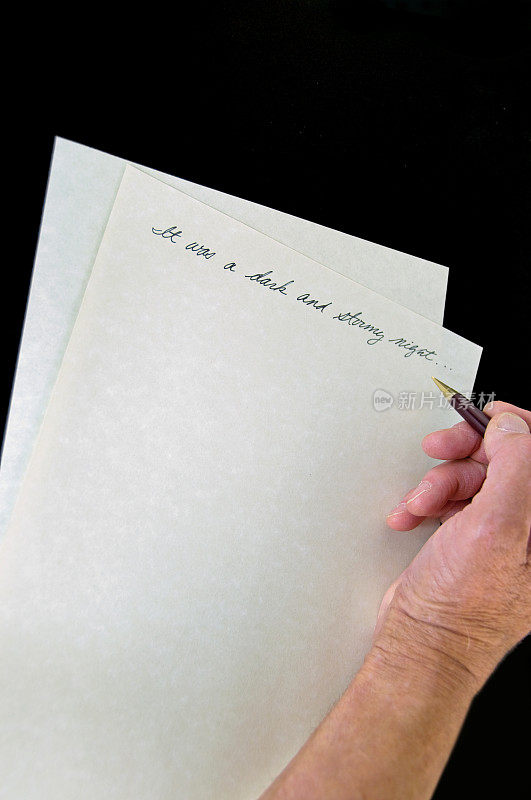 It was a dark and stormy night...
new 新片场